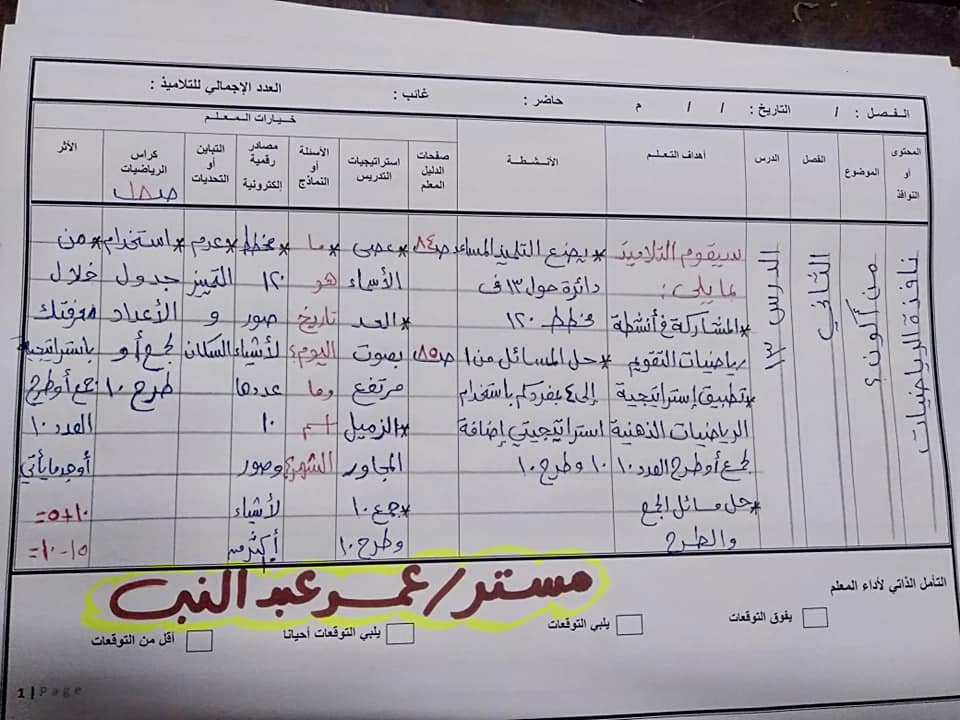 الـفـصـل : / التاريخ : / / م حاضر : غائب : العدد الإجمالي للتلاميذ :
المحتوى أو النوافذ
الموضوع
الفصل
الدرس
أهداف التعلـم
الأنـشـطـة
خـيـارات الـمـعـلـم
صفحات الدليل المعلم
استراتيجيات التدريس
الأسئلة أو النماذج
مصادر رقمية إلكترونية
التباين أو التحديات
كراس الرياضيات
الأثر
نافذة الرياضيات
من أكون؟
الثاني
الدرس ١٣
سيقوم التلاميذ
بما يلى :
*المشاركة فى أنشطة
رياضيات التقويم
*تطبيق إستراتيجية
الرياضيات الذهنية
لجمع أو طرح العدد ١٠
*حل مسائل الجمع
والطرح
* يضع التلميذ المساعد
دائرة حول ١٣ فى
مخطط ١٢٠
* حل المسائل من ١
إلى ٤ بمفردكم باستخدام
استراتيجيتي إضافة
١٠ وطرح ١٠
ص٨٤
ص٨٥
* عصى
الأسماء
*العد
بصوت
مرتفع
*الزميل
المجاور
*جمع ١٠
وطرح ١٠
ما
هو
تاريخ
اليوم؟
وما
اسم
الشهر؟
* مخطط
١٢٠
صور
لأشياء
عددها
١٠
وصور
لأشياء
أكثر من
*عدم
التمييز
و
السكان
* استخدام
جدول
الأعداد
لجمع أو
طرح ١٠
*من
خلال
معرفتك
باستراتيجية
جمع أو طرح
العدد ١٠
أوجد ما يأتي
١٠+٥=
١٥-١٠=
مستر/عمر عبد النبى
التأمل الذاتي لأداء المعلم
يفوق التوقعات
يلبي التوقعات
يلبي التوقعات أحيانا
أقل من التوقعات
1 | Page